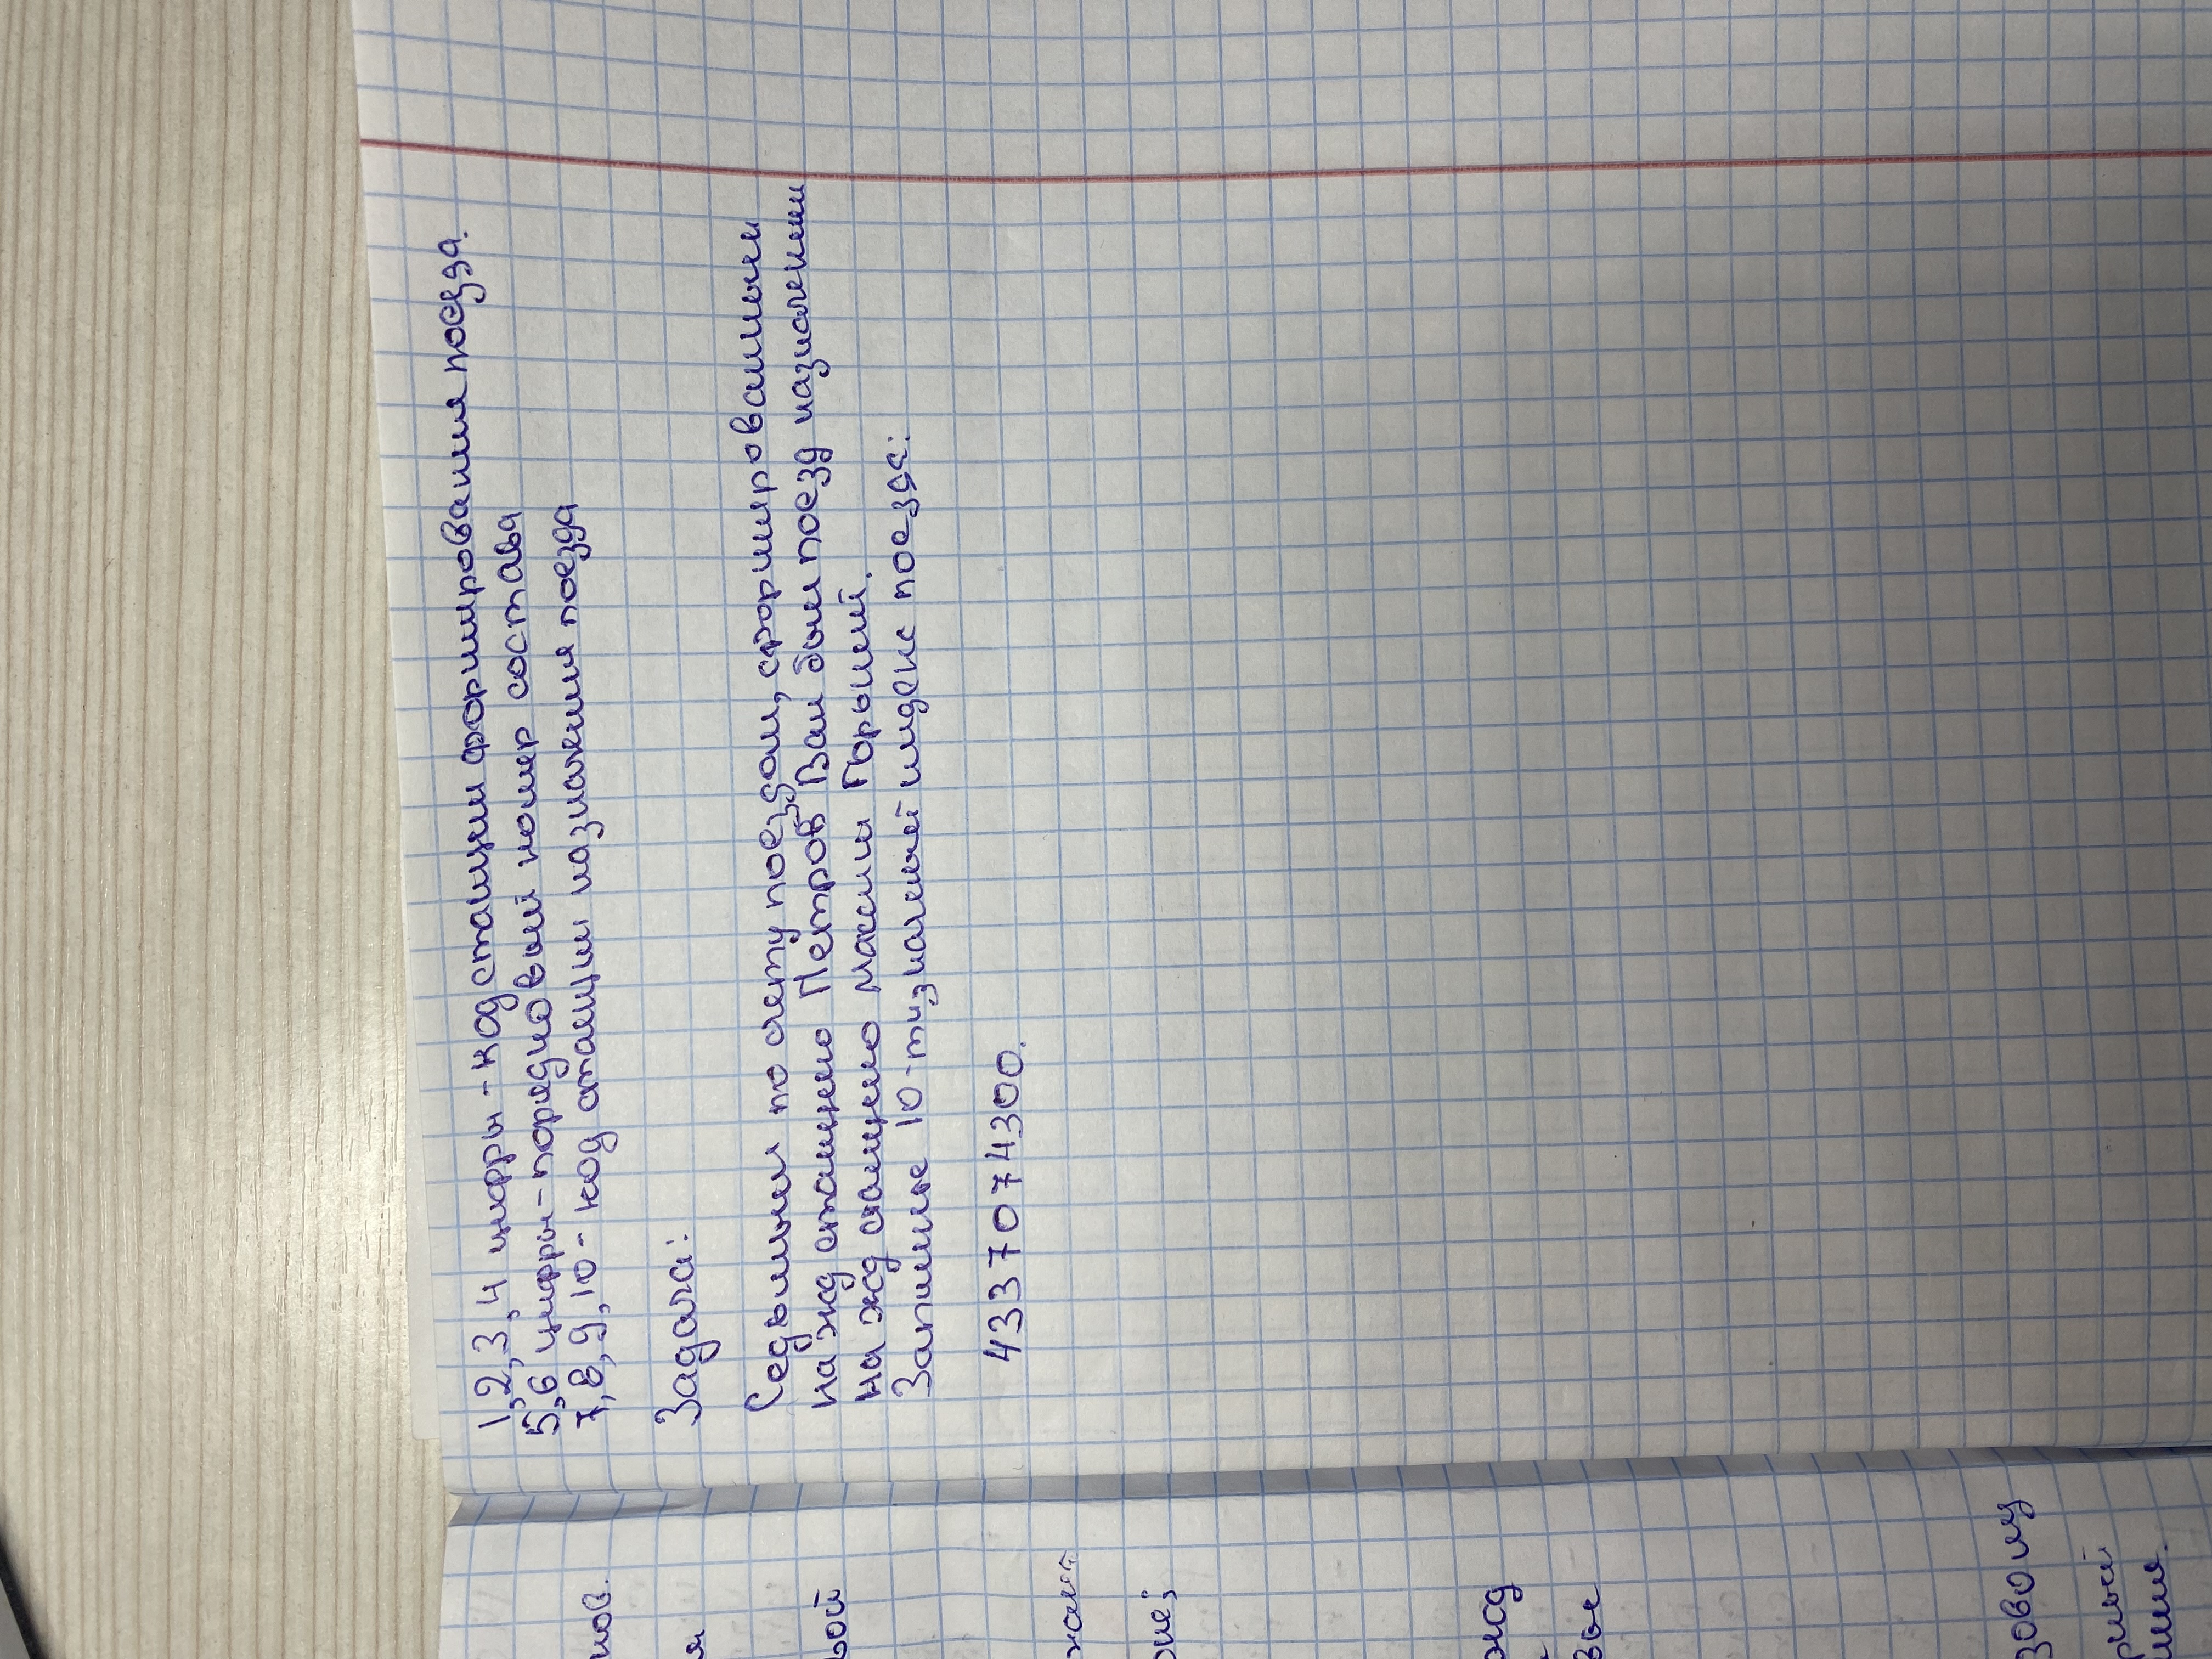 1,2,3,4 цифры - код станции формирования поезда.
5,6 цифры - порядковый номер состава
7,8,9,10 - код станции назначения поезда
Задача:
Седьмым по счету поездом, сформированным
на жд станцию Петров Вал был поезд назначением
на жд станцию Максим Горький.
Запишите 10-тизначный индекс поезда:
4337074300.
нов.
я
вой
жд
вые
зовому